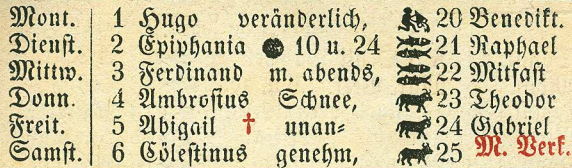 Mont. 1 Hugo veränderlich, 20 Benedikt.
Dienst. 2 Epiphania 10 u. 24 21 Raphael
Mittw. 3 Ferdinand m. abends, 22 Mitfast
Donn. 4 Ambrosius Schnee, 23 Theodor
Freit. 5 Abigail † unan- 24 Gabriel
Samst. 6 Cölestinus genehm, 25 M. Verk.